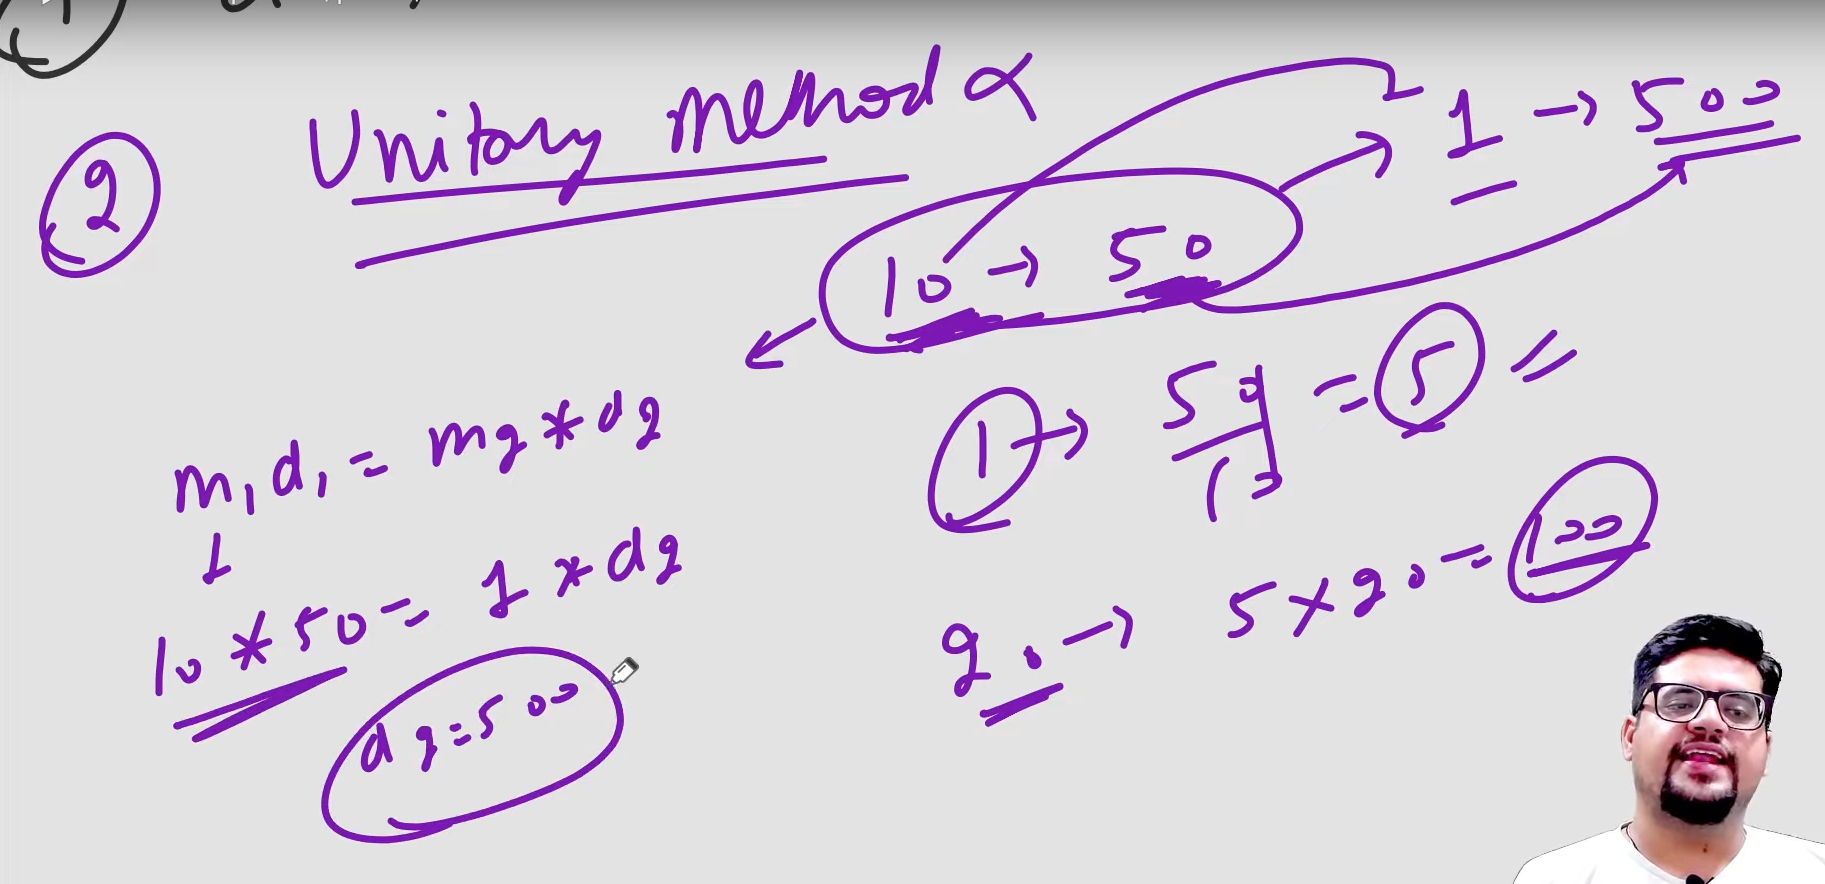 ② Unitary Method α
1 → 500
10 → 50
m₁d₁ = m2 * d2
↓
10 * 50 = 1 * d2
d2 = 500
① → 50/10 = 5
20 → 5 × 20 = 100